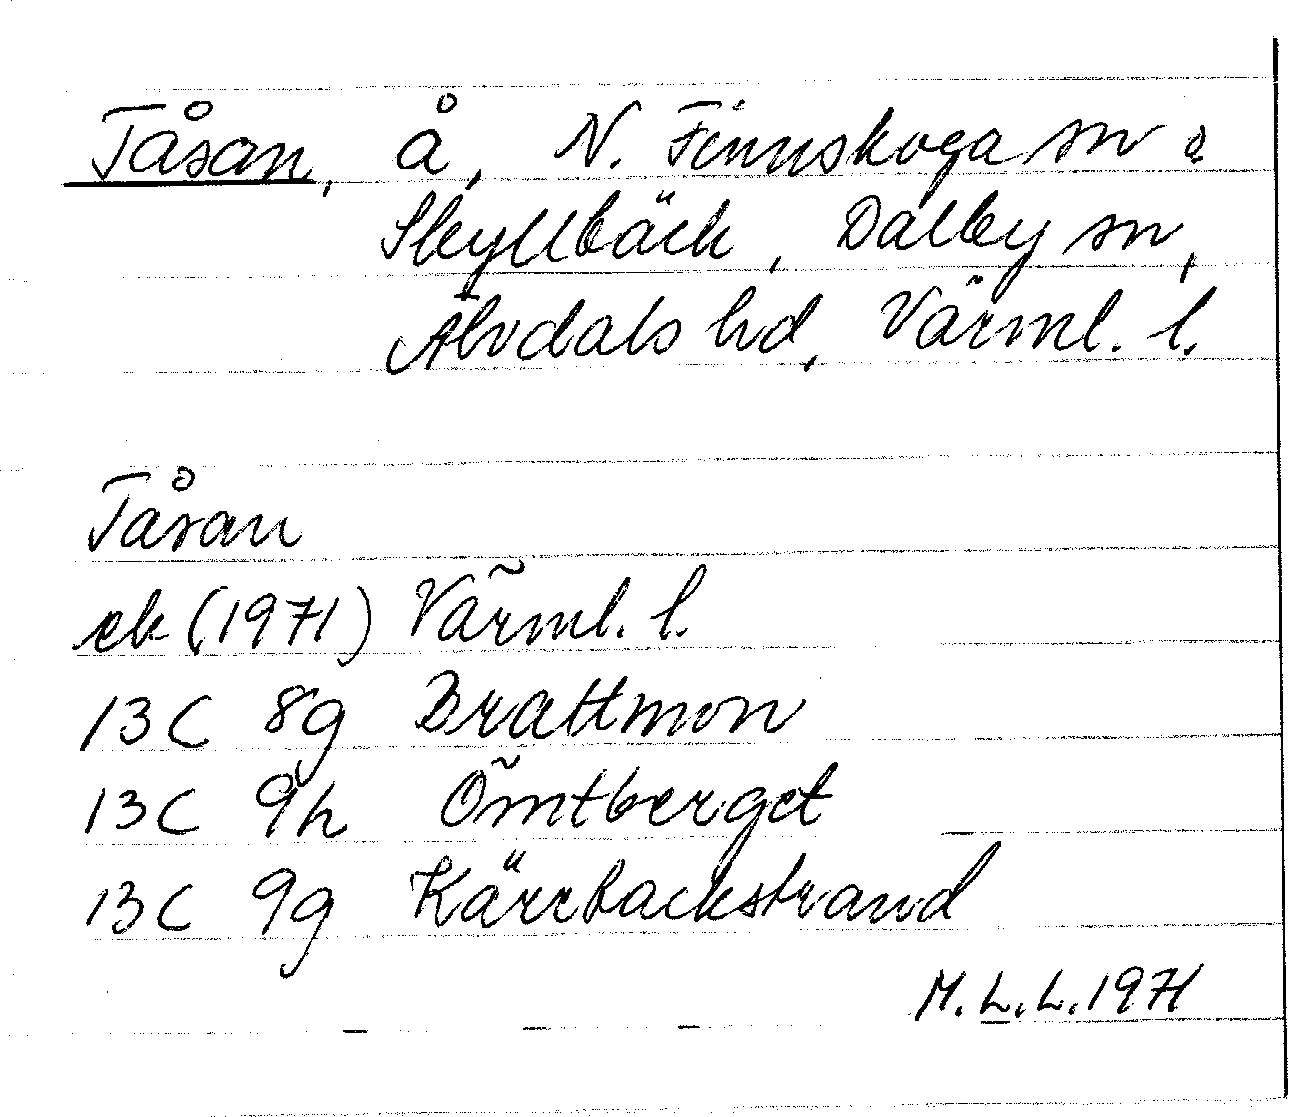 Tåsan, å, N. Finnskoga sn o
Skyllbäck, Dalby sn,
Älvdals hd, Värml. l.
Tåsan
ek (1971) Värml. l.
13C 8g Brattmon
13C 9h Ömtberget
13C 9g Kärrbackstrand
M.L.L. 1971